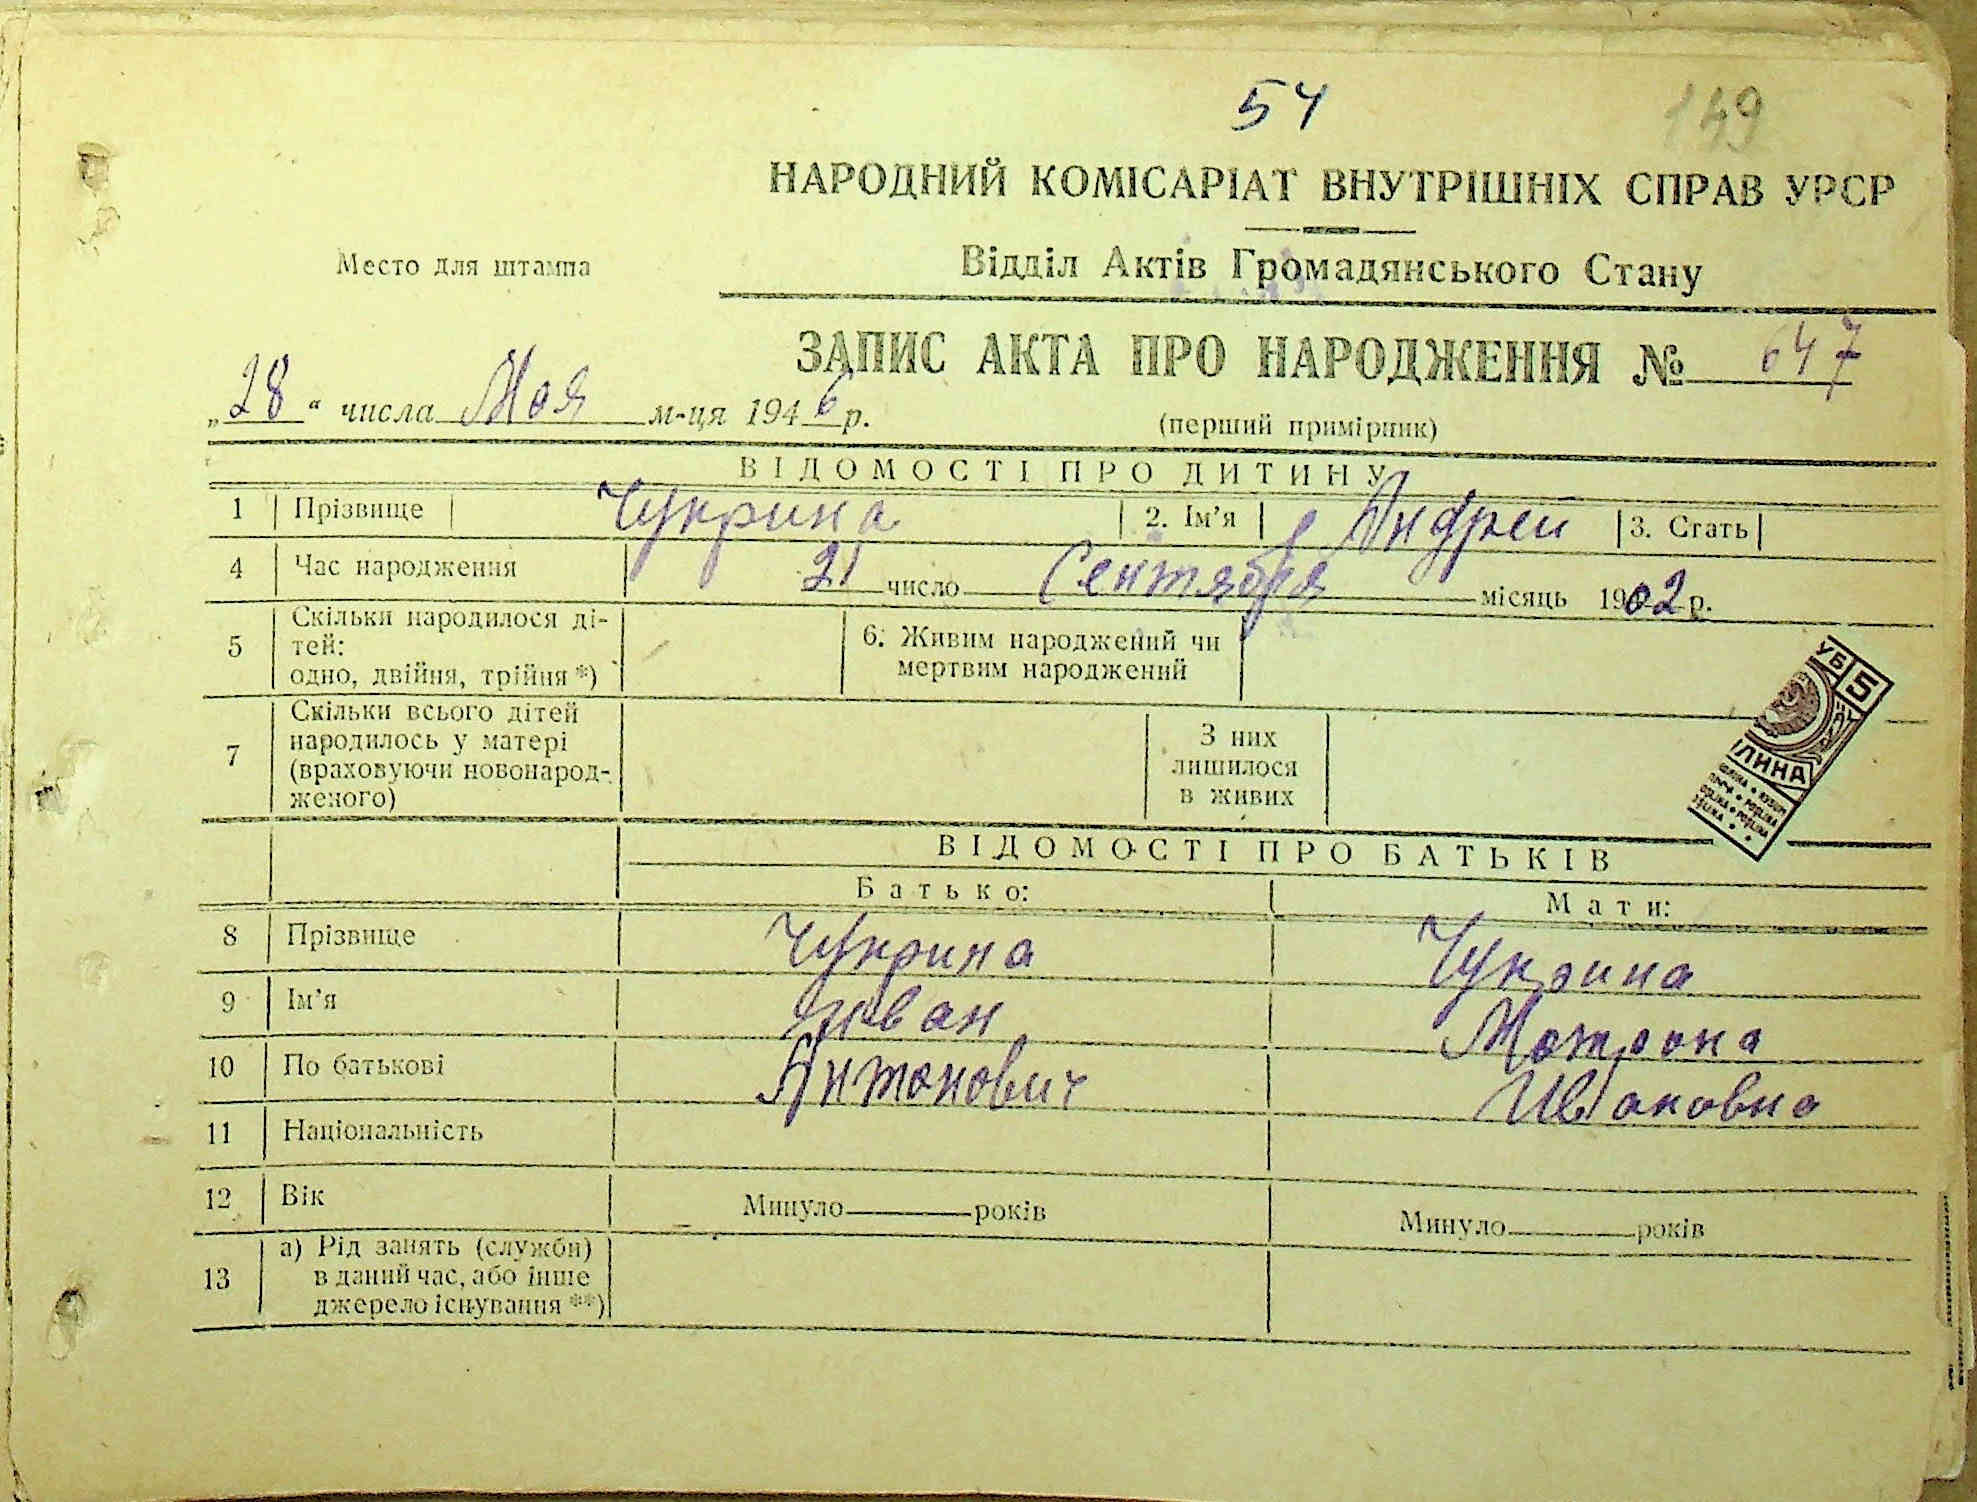 54
149
НАРОДНИЙ КОМІСАРІАТ ВНУТРІШНІХ СПРАВ УРСР
Место для штампа
Відділ Актів Громадянського Стану
ЗАПИС АКТА ПРО НАРОДЖЕННЯ № 647
„28“ числа Мая м-ця 1946 р.
(перший примірник)
ВІДОМОСТІ ПРО ДИТИНУ
1 Прізвище Чукрина 2. Ім'я Андрей 3. Стать
4 Час народження 21 число Сентября місяць 1902 р.
5 Скільки народилося ді-
тей:
одно, двійня, трійня *)
6. Живим народжений чи
мертвим народжений
7 Скільки всього дітей
народилось у матері
(враховуючи новонарод-
женого)
З них
лишилося
в живих
УБ 5
ІЛИНА
ВІДОМОСТІ ПРО БАТЬКІВ
Батько: Мати:
8 Прізвище Чукрина Чукрина
9 Ім'я Иван Мотрона
10 По батькові Антонович Ивановна
11 Національність
12 Вік Минуло років Минуло років
13 а) Рід занять (служби)
в даний час, або інше
джерело існування **)